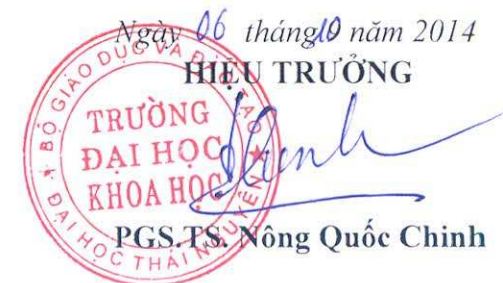 Ngày 06 tháng 10 năm 2014
HIỆU TRƯỞNG
BỘ GIÁO DỤC VÀ ĐÀO TẠO
TRƯỜNG
ĐẠI HỌC
KHOA HỌC
ĐẠI HỌC THÁI NGUYÊN
PGS.TS. Nông Quốc Chinh